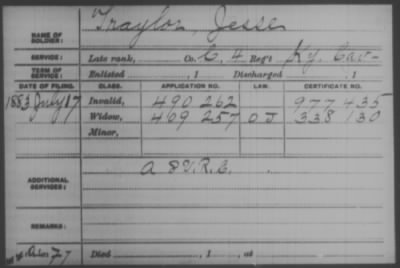 NAME OF SOLDIER: Traylor, Jesse
SERVICE: Late rank, Co. C, 4 Reg't Ky. Cav-
TERM OF SERVICE: Enlisted , 1 Discharged , 1
DATE OF FILING. CLASS. APPLICATION NO. LAW. CERTIFICATE NO.
1883 July 17 Invalid, 490 262 977 435
Widow, 469 257 O J 338 130
Minor,
ADDITIONAL SERVICES: A
REMARKS:
Died , 1 , at